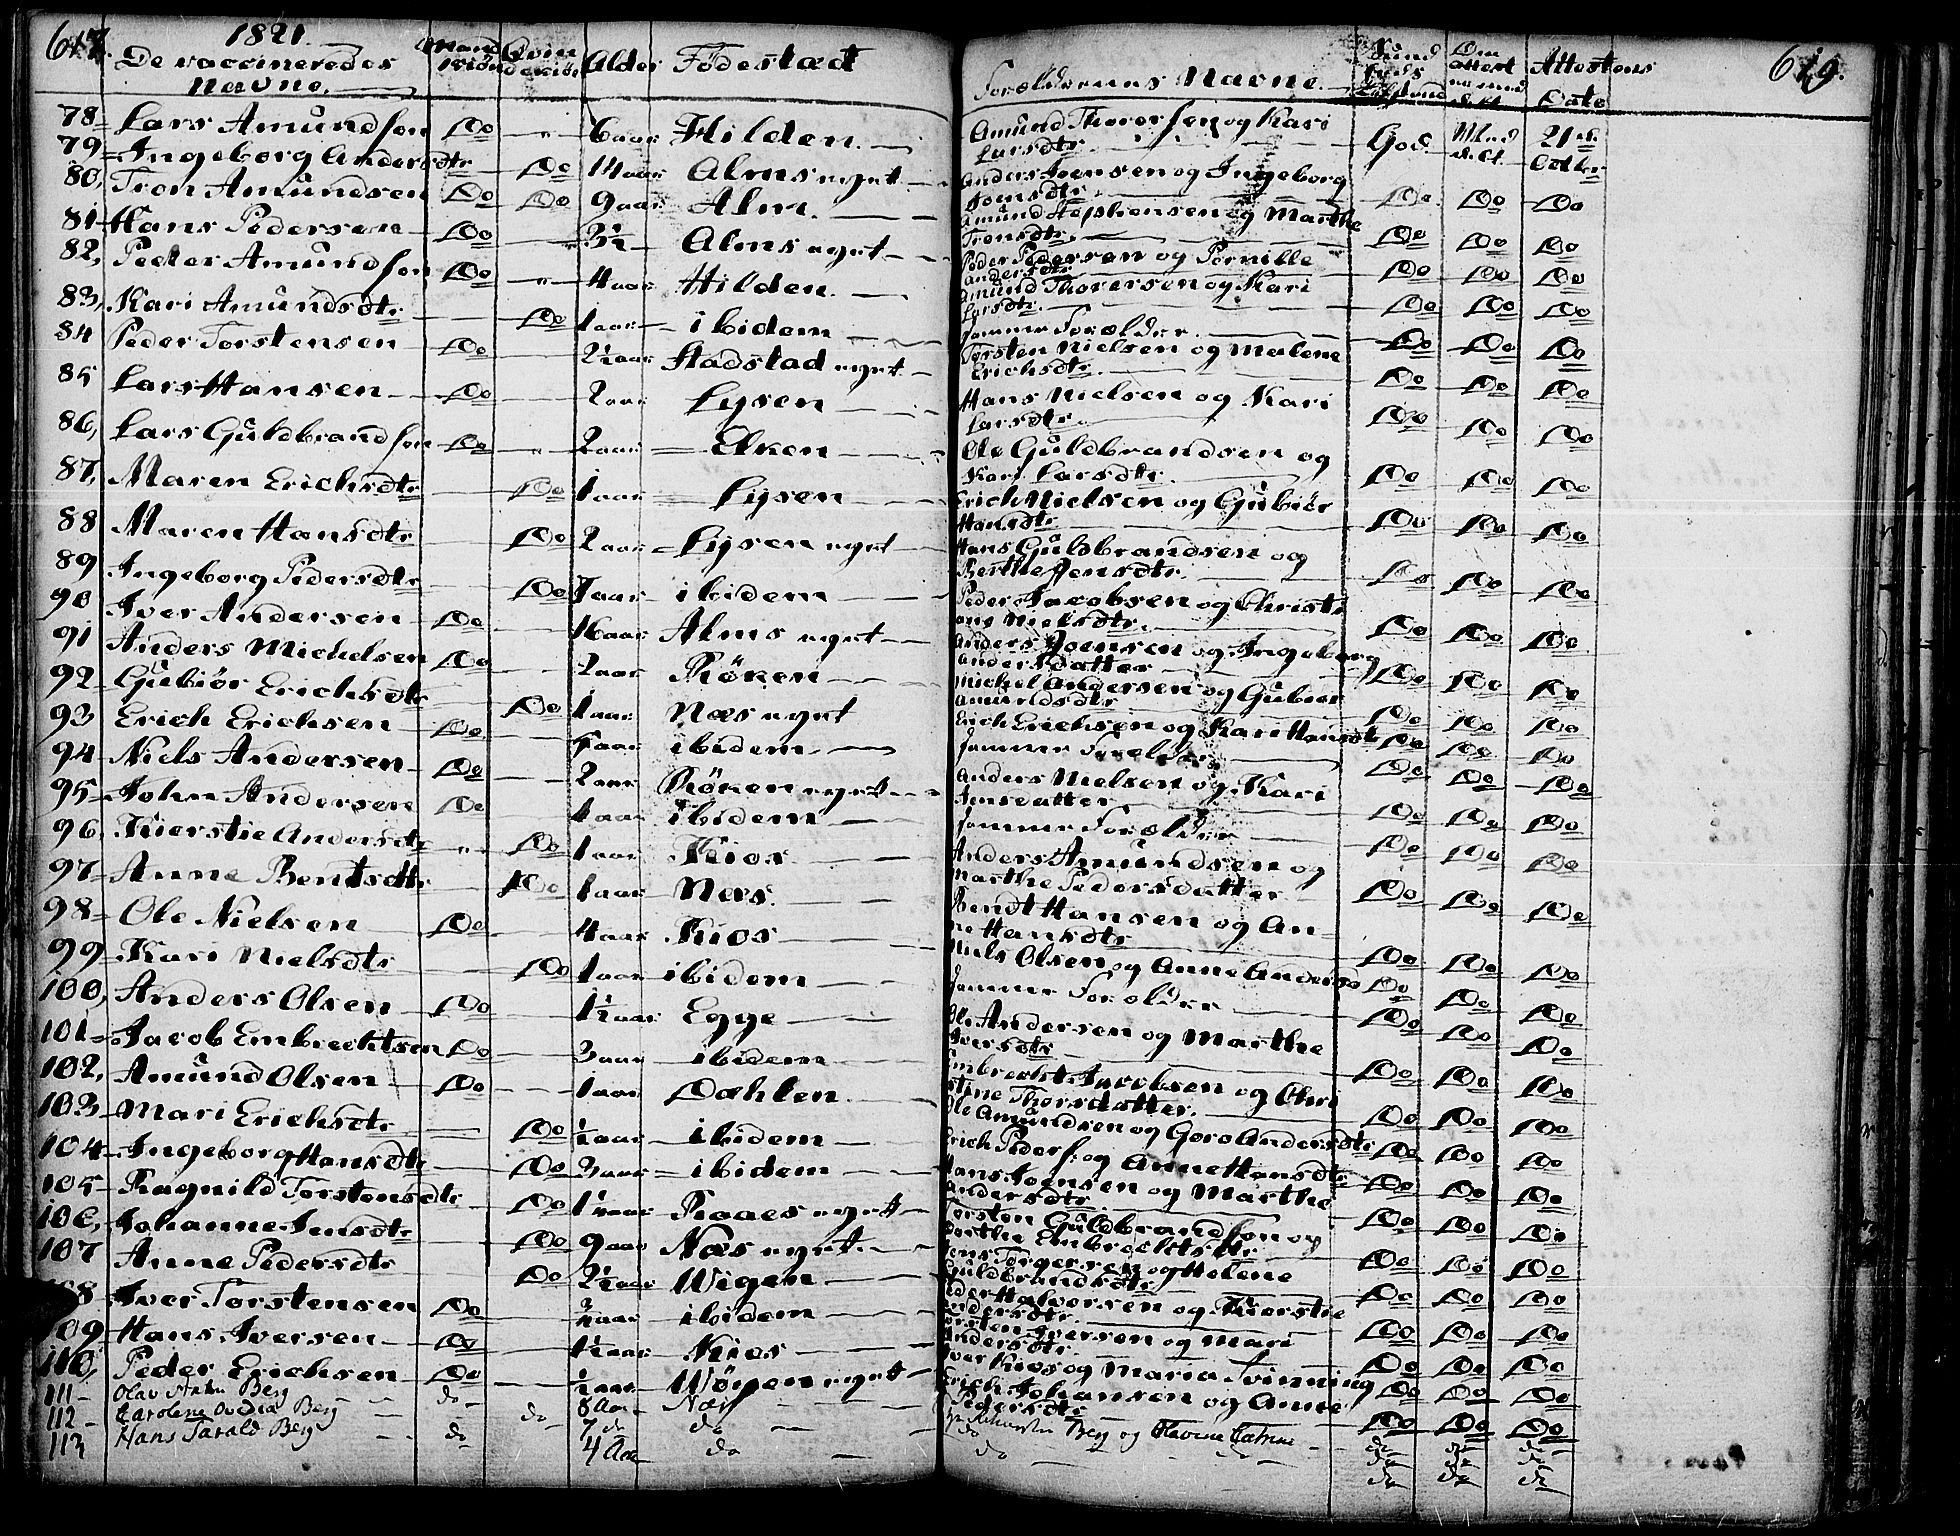 1821
De vaccineredes Navne. Mand Kiøn Qvin dekiøn Alder Födestæd
78 Lars Amundsen Do — 6 aar Hilden
79 Ingeborg Andersdtr — Do 14 aar Alms eyet
80, Tron Amundsen Do Do 9 aar Alm
81 Hans Pedersen Do — 3½ Alms eyet
82, Peder Amundsen Do — 4 aar Hilden
83, Kari Amundsdtr — Do 1 aar ibidem
84 Peder Torstensen Do — 2½ aar Hadstad eyet
85 Lars Hansen Do — 2 aar Lysen
86, Lars Guldbrandsen Do — 2 aar Elken
87, Maren Erichsdtr — Do 1 aar Lysen
88 Maren Hansdtr — Do 2 aar Lysen eyet
89 Ingeborg Pedersdtr — Do 1 aar ibidem
90 Iver Andersen Do — 16 aar Alms eyet
91 Anders Michelsen Do — 2 aar Röken
92 Gubiör Erichsdtr — Do 1 aar Næs eyet
93 Erich Erichsen Do — aar ibidem
94 Niels Andersen Do — 2 aar Röken eyet
95 John Andersen Do 1 aar ibidem
96, Kierstie Andersdtr — Do 1 aar Kios
97 Anne Bentsdtr — Do 1 aar Næs
98 Ole Nielsen Do — 4 aar Kios
99 Kari Nielsdtr — Do 1 aar ibidem
100, Anders Olsen Do — 1½ aar Egge
101 Jacob Embrechtsen Do — 3 aar ibidem
102, Amund Olsen Do — 1 aar Dæhlen
103 Mari Erichsdtr — Do ½ aar ibidem
104 Ingeborg Hansdtr — Do 3 aar ibidem
105 Ragnild Torstensdtr — Do 1½ aar Raaes eyet
106, Johanne Jensdtr — Do 9 aar Næs eyet
107 Anne Pedersdtr — Do 2½ aar Wigen
108 Iver Torstensen Do — aar ibidem
109 Hans Iversen Do — 1½ aar Kios
110, Peder Erichsen Do — ½ aar eyet
111 Berg do 8 Aar Næs
112 Karoline Berg do 7 do do
113 Hans Berg do 4 Aar do
Forældrenes Navne. Attestens Date
Amund Thorersen og Kari
Larsdtr God 21de Octbr
Anders Joensen og Ingeborg
Joensdtr Do Do Do
Amund Stephensen og Marthe
Tronsdtr Do Do Do
Peder Pedersen og Pernille
Andersdtr Do Do Do
Amund Thorersen og Kari
Larsdtr Do Do Do
sammer Forælder Do Do Do
Torsten Nielsen og Malene
Erichsdtr Do Do Do
Hans Nielsen og Kari
Larsdtr Do Do Do
Ole Guldbrandsen og
Kari Larsdtr Do Do Do
Erich Nielsen og Gubiör
Hansdtr Do Do Do
Hans Guldbrandsen og
Berthe Jensdtr Do Do Do
Peder Jacobsen og Christi
ane Nielsdtr Do Do Do
Anders Joensen og Ingeborg
Andersdatter Do Do Do
Michel Andersen og Gubiör
Amundsdtr Do Do Do
Erich Erichsen og Kari Hansdtr Do Do Do
sammer Forælder Do Do Do
Anders Nielsen og Kari
Jensdatter Do Do Do
sammer Forælder Do Do Do
Anders Amundsen og
Marthe Pedersdatter Do Do Do
Bendt Hansen og An-
ne Hansdtr Do Do Do
Niels Olsen og Anne Andersd Do Do Do
sammer Forælder Do Do Do
Ole Andersen og Marthe
Iversdtr Do Do Do
Embrecht Jacobsen og Chri
stine Thorsdatter Do Do Do
Ole Amundsen og Goro Andersdtr Do Do Do
Erich Peders. og Anne Hansdtr Do Do Do
Hans Joensen og Marthe
Andersdtr Do Do Do
Torsten Guldbrandsen og
Marthe Embrechtsdtr Do Do Do
Jens Torgersen og Helene
Guldbrandsdtr Do Do Do
Peder Halvorsen og Kierstie
Andersdtr Do Do Do
Torsten Iversen og Mari
Andersdtr Do Do Do
Iver Kios og Maria Svinning Do Do Do
Erich Johansen og Anne
Pedersdtr Do Do Do
Berg og do do do
do do do do
do do do